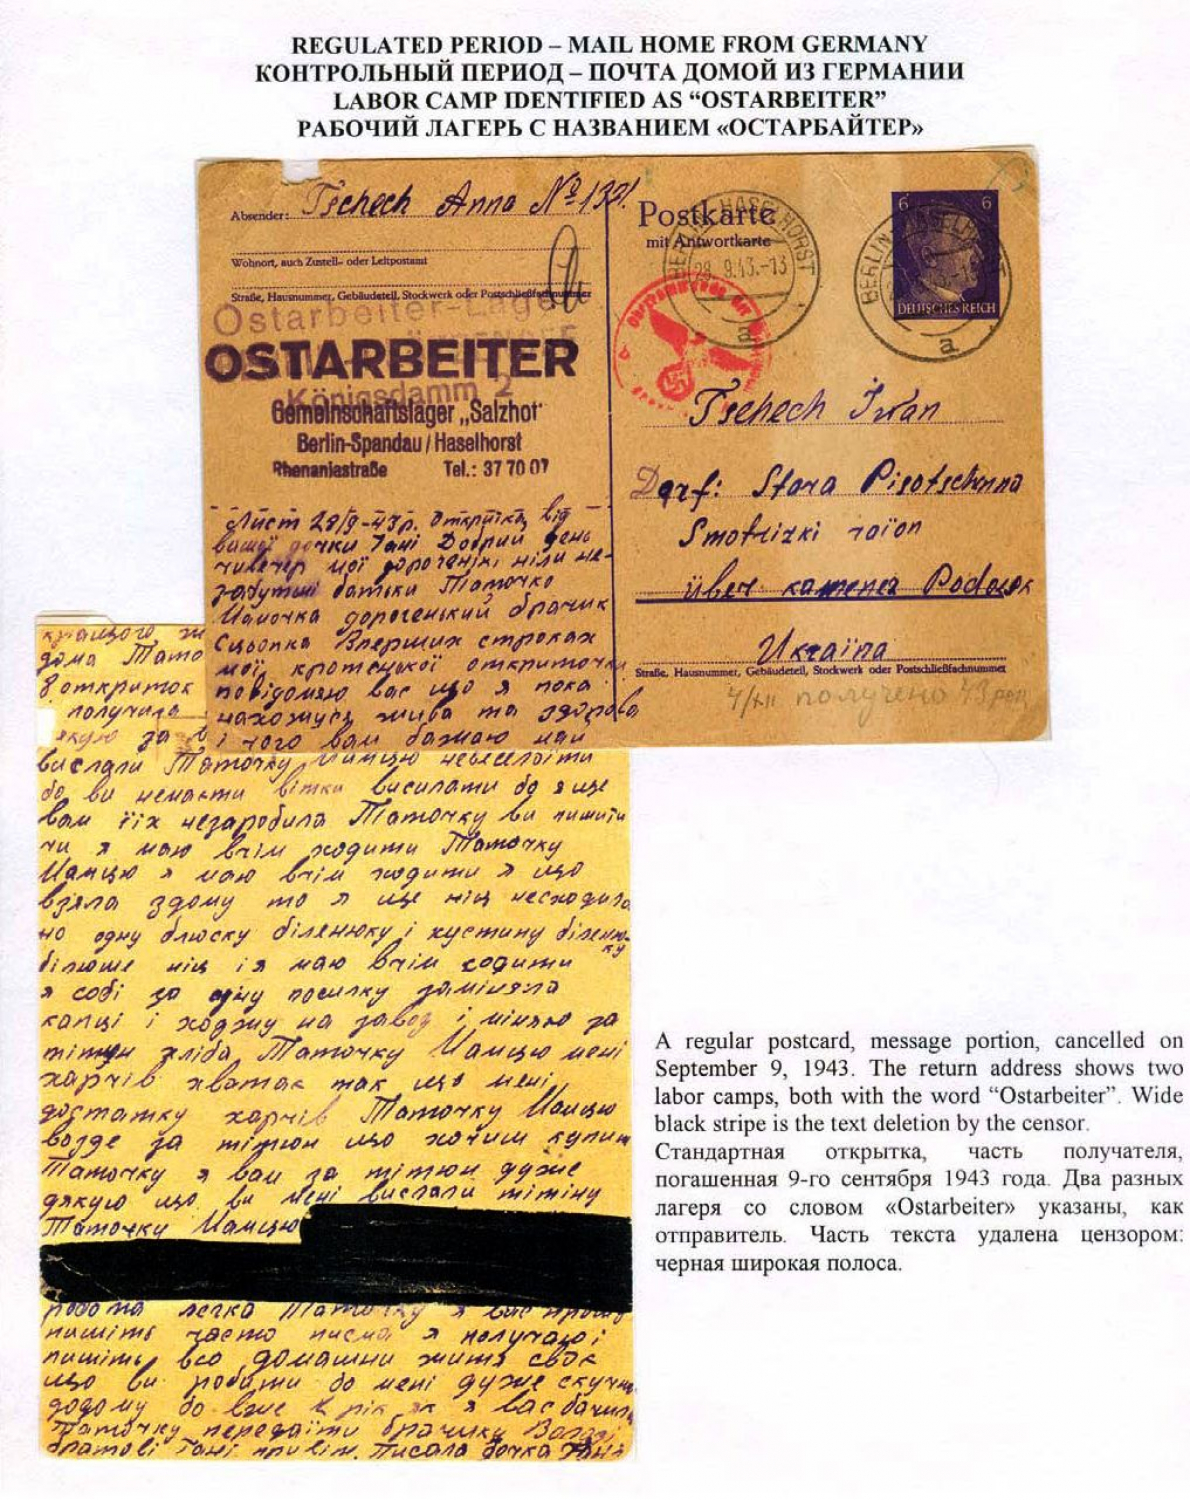 REGULATED PERIOD – MAIL HOME FROM GERMANY
КОНТРОЛЬНЫЙ ПЕРИОД – ПОЧТА ДОМОЙ ИЗ ГЕРМАНИИ
LABOR CAMP IDENTIFIED AS “OSTARBEITER”
РАБОЧИЙ ЛАГЕРЬ С НАЗВАНИЕМ «ОСТАРБАЙТЕР»
Absender: Tschech Anna № 1321
Wohnort, auch Zustell- oder Leitpostamt
Straße, Hausnummer, Gebäudeteil, Stockwerk oder Postschließfachnummer
Ostarbeiter-Lager
OSTARBEITER
Königsdamm 2
Gemeinschaftslager „Salzhof“
Berlin-Spandau / Haselhorst
Rhenaniastraße Tel.: 37 70 07
Лист 28/9-43р. Откритка від
вашої дочки Гані Добрий день
чивечер мої дорогенькі міли не-
забутні батьки Таточко
Мамочка дорогенький брачик
Сцьопка Вперших строках
мої кротенької откриточки
повідомляю вас що я пока
нахожусь жива та здорова
і чого вам бажаю най
Postkarte
mit Antwortkarte
BERLIN-HASELHORST
28.9.43.-13
a
6 6
DEUTSCHES REICH
BERLIN-HASELHORST
a
Tschech Iwan
Dorf: Stara Pisotschnna
Smotrizki raion
über kamenez Podolsk
Ukraina
Straße, Hausnummer, Gebäudeteil, Stockwerk oder Postschließfachnummer
4/XII получено 43
кращого
дома Тато
8 откриток
получила
якую за
вислали Таточку Мамцю невиселоіти
бо ви немаєти вітки висилати бо я ще
вам їїх незаробила Таточку ви пишити
чи я маю вчім ходити Таточку
Мамцю я маю вчім ходити я що
взяла здому то я ще ніц несходила
но одну блюску біленюку і хустину біленюку
більше ніц і я маю вчім ходити
я собі за одну посилку заміняла
капці і ходжу на завод і міняю за
тітюн хліба Таточку Мамцю мені
харчів хватає так що мені
достатку харчів Таточку Мамцю
возде за тітюн що хочиш купиш
Таточку я вам за тітюн дуже
дякую що ви мені вислали тітіну
Таточку Мамцю
робота легка Таточку я вас прошу
пишіть часто письма я получаю і
пишіть всо домашни житя своє
що ви робити бо мені дуже скучно
додому бо вже рік як я вас бачила
Таточку передаїти брачику Володі
братові Гані привіт. Писала дочка Ганя
A regular postcard, message portion, cancelled on
September 9, 1943. The return address shows two
labor camps, both with the word “Ostarbeiter”. Wide
black stripe is the text deletion by the censor.
Стандартная открытка, часть получателя,
погашенная 9-го сентября 1943 года. Два разных
лагеря со словом «Ostarbeiter» указаны, как
отправитель. Часть текста удалена цензором:
черная широкая полоса.